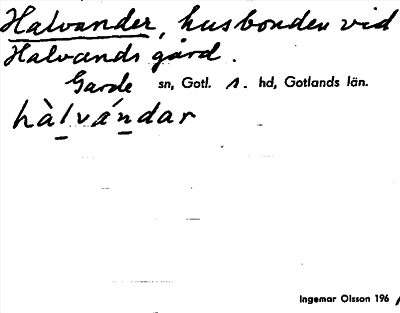 Halvander, husbonden vid
Halvands gård.
Garde sn, Gotl. 1. hd, Gotlands län.
hàlvándar
Ingemar Olsson 196